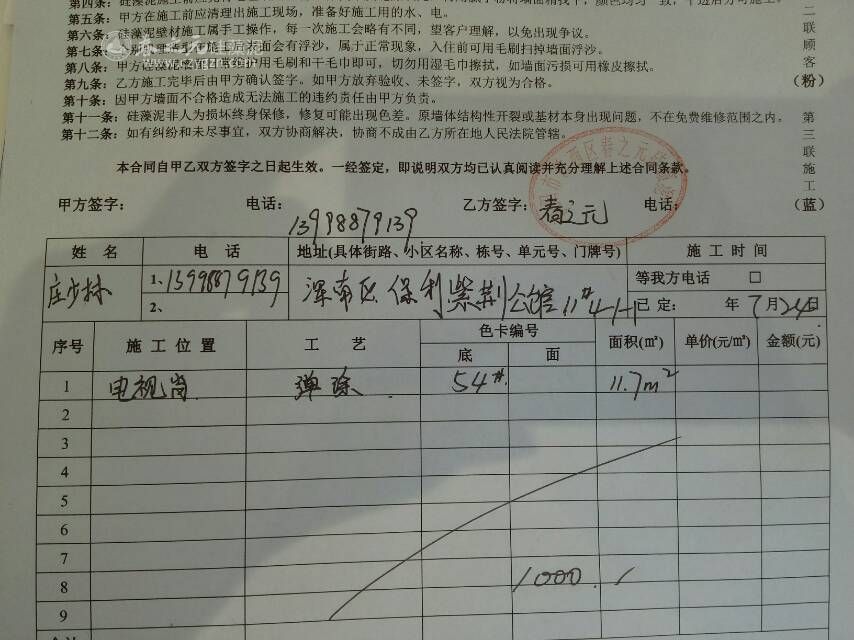 第五条：甲方在施工前应清理出施工现场，准备好施工用的水、电。
第六条：硅藻泥壁材施工属手工操作，每一次施工会略有不同，望客户理解，以免出现争议。
第七条：个别肌理清水施工后表面会有浮沙，属于正常现象，入住前可用毛刷扫掉墙面浮沙。
第八条：甲方硅藻泥墙面日常维护用毛刷和干毛巾即可，切勿用湿毛巾擦拭，如墙面污损可用橡皮擦拭。
第九条：乙方施工完毕后由甲方确认签字。如甲方放弃验收、未签字，双方视为合格。
第十条：因甲方墙面不合格造成无法施工的违约责任由甲方负责。
第十一条：硅藻泥非人为损坏终身保修，修复可能出现色差。原墙体结构性开裂或基材本身出现问题，不在免费维修范围之内。
第十二条：如有纠纷和未尽事宜，双方协商解决，协商不成由乙方所在地人民法院管辖。
二联顾客（粉）
第三联施工（蓝）
本合同自甲乙双方签字之日起生效。一经签定，即说明双方均已认真阅读并充分理解上述合同条款。
甲方签字： 电话：13998879139 乙方签字：春之元 电话：
姓 名 电 话 地址(具体街路、小区名称、栋号、单元号、门牌号) 施 工 时 间
庄少林 1、13998879139 浑南区保利紫荆公馆11#4-1-1 等我方电话 □
2、 已定： 年 7月24日
序号 施 工 位 置 工 艺 色卡编号 面积(㎡) 单价(元/㎡) 金额(元)
底 面
1 电视背 弹涂 54# 11.7m²
2
3
4
5
6
7
8 1000.
9